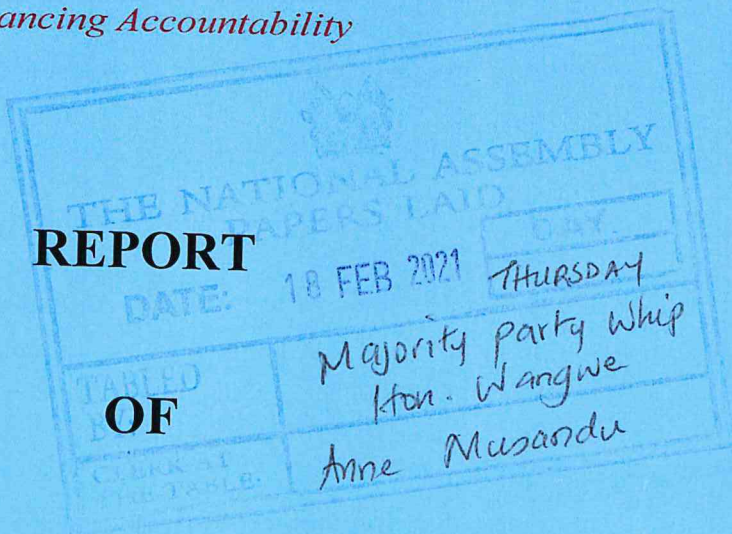 ancing Accountability
THE NATIONAL ASSEMBLY
PAPERS LAID
REPORT
DAY.
DATE: 18 FEB 2021 THURSDAY
TABLED
BY
Majority party Whip
Hon. Wangwe
OF
CLERK AT
THE-TABLE:
Anne Musandu